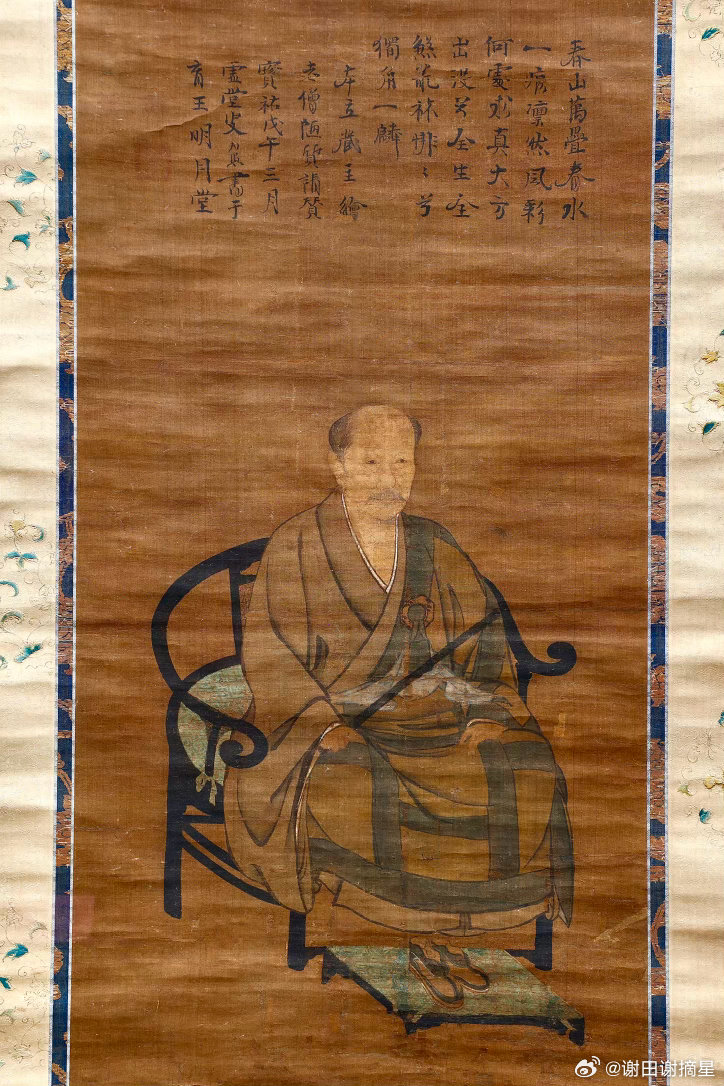 春山萬疊春水
一痕凜然風彩
何處求真大方
出没兮全生全
煞
獨角一麟
本立藏主繪
老僧陋質請贊
寶祐戊午三月
虛堂叟 書于
育王明月堂
@谢田谢摘星